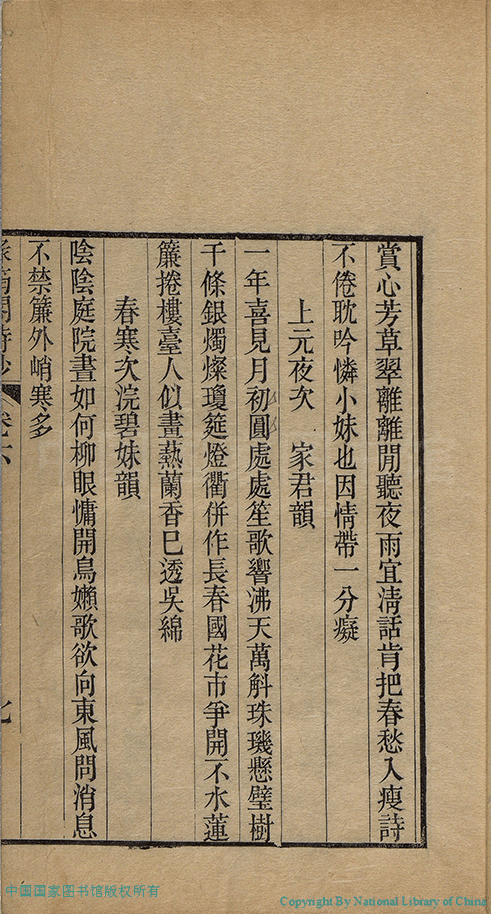 賞心芳草翠離離閒聽夜雨宜淸話肯把春愁入瘦詩
不倦耽吟憐小妹也因情帶一分癡
上元夜次　家君韻
一年喜見月初圓處處笙歌響沸天萬斛珠璣懸璧樹
千條銀燭燦瓊筵燈衢併作長春國花市爭開不水蓮
簾捲樓臺人似畫熱蘭香巳透吳綿
春寒次浣碧妹韻
陰陰庭院晝如何柳眼慵開鳥嬾歌欲向東風問消息
不禁簾外峭寒多
閨詩鈔 卷六
七
中国国家图书馆版权所有
Copyright By National Library of China